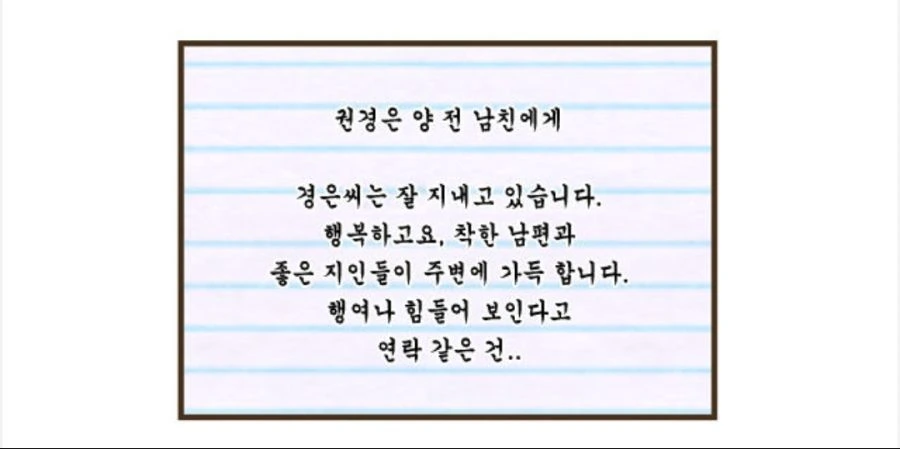 권경은 양 전 남친에게
경은씨는 잘 지내고 있습니다.
행복하고요, 착한 남편과
좋은 지인들이 주변에 가득 합니다.
행여나 힘들어 보인다고
연락 같은 건..